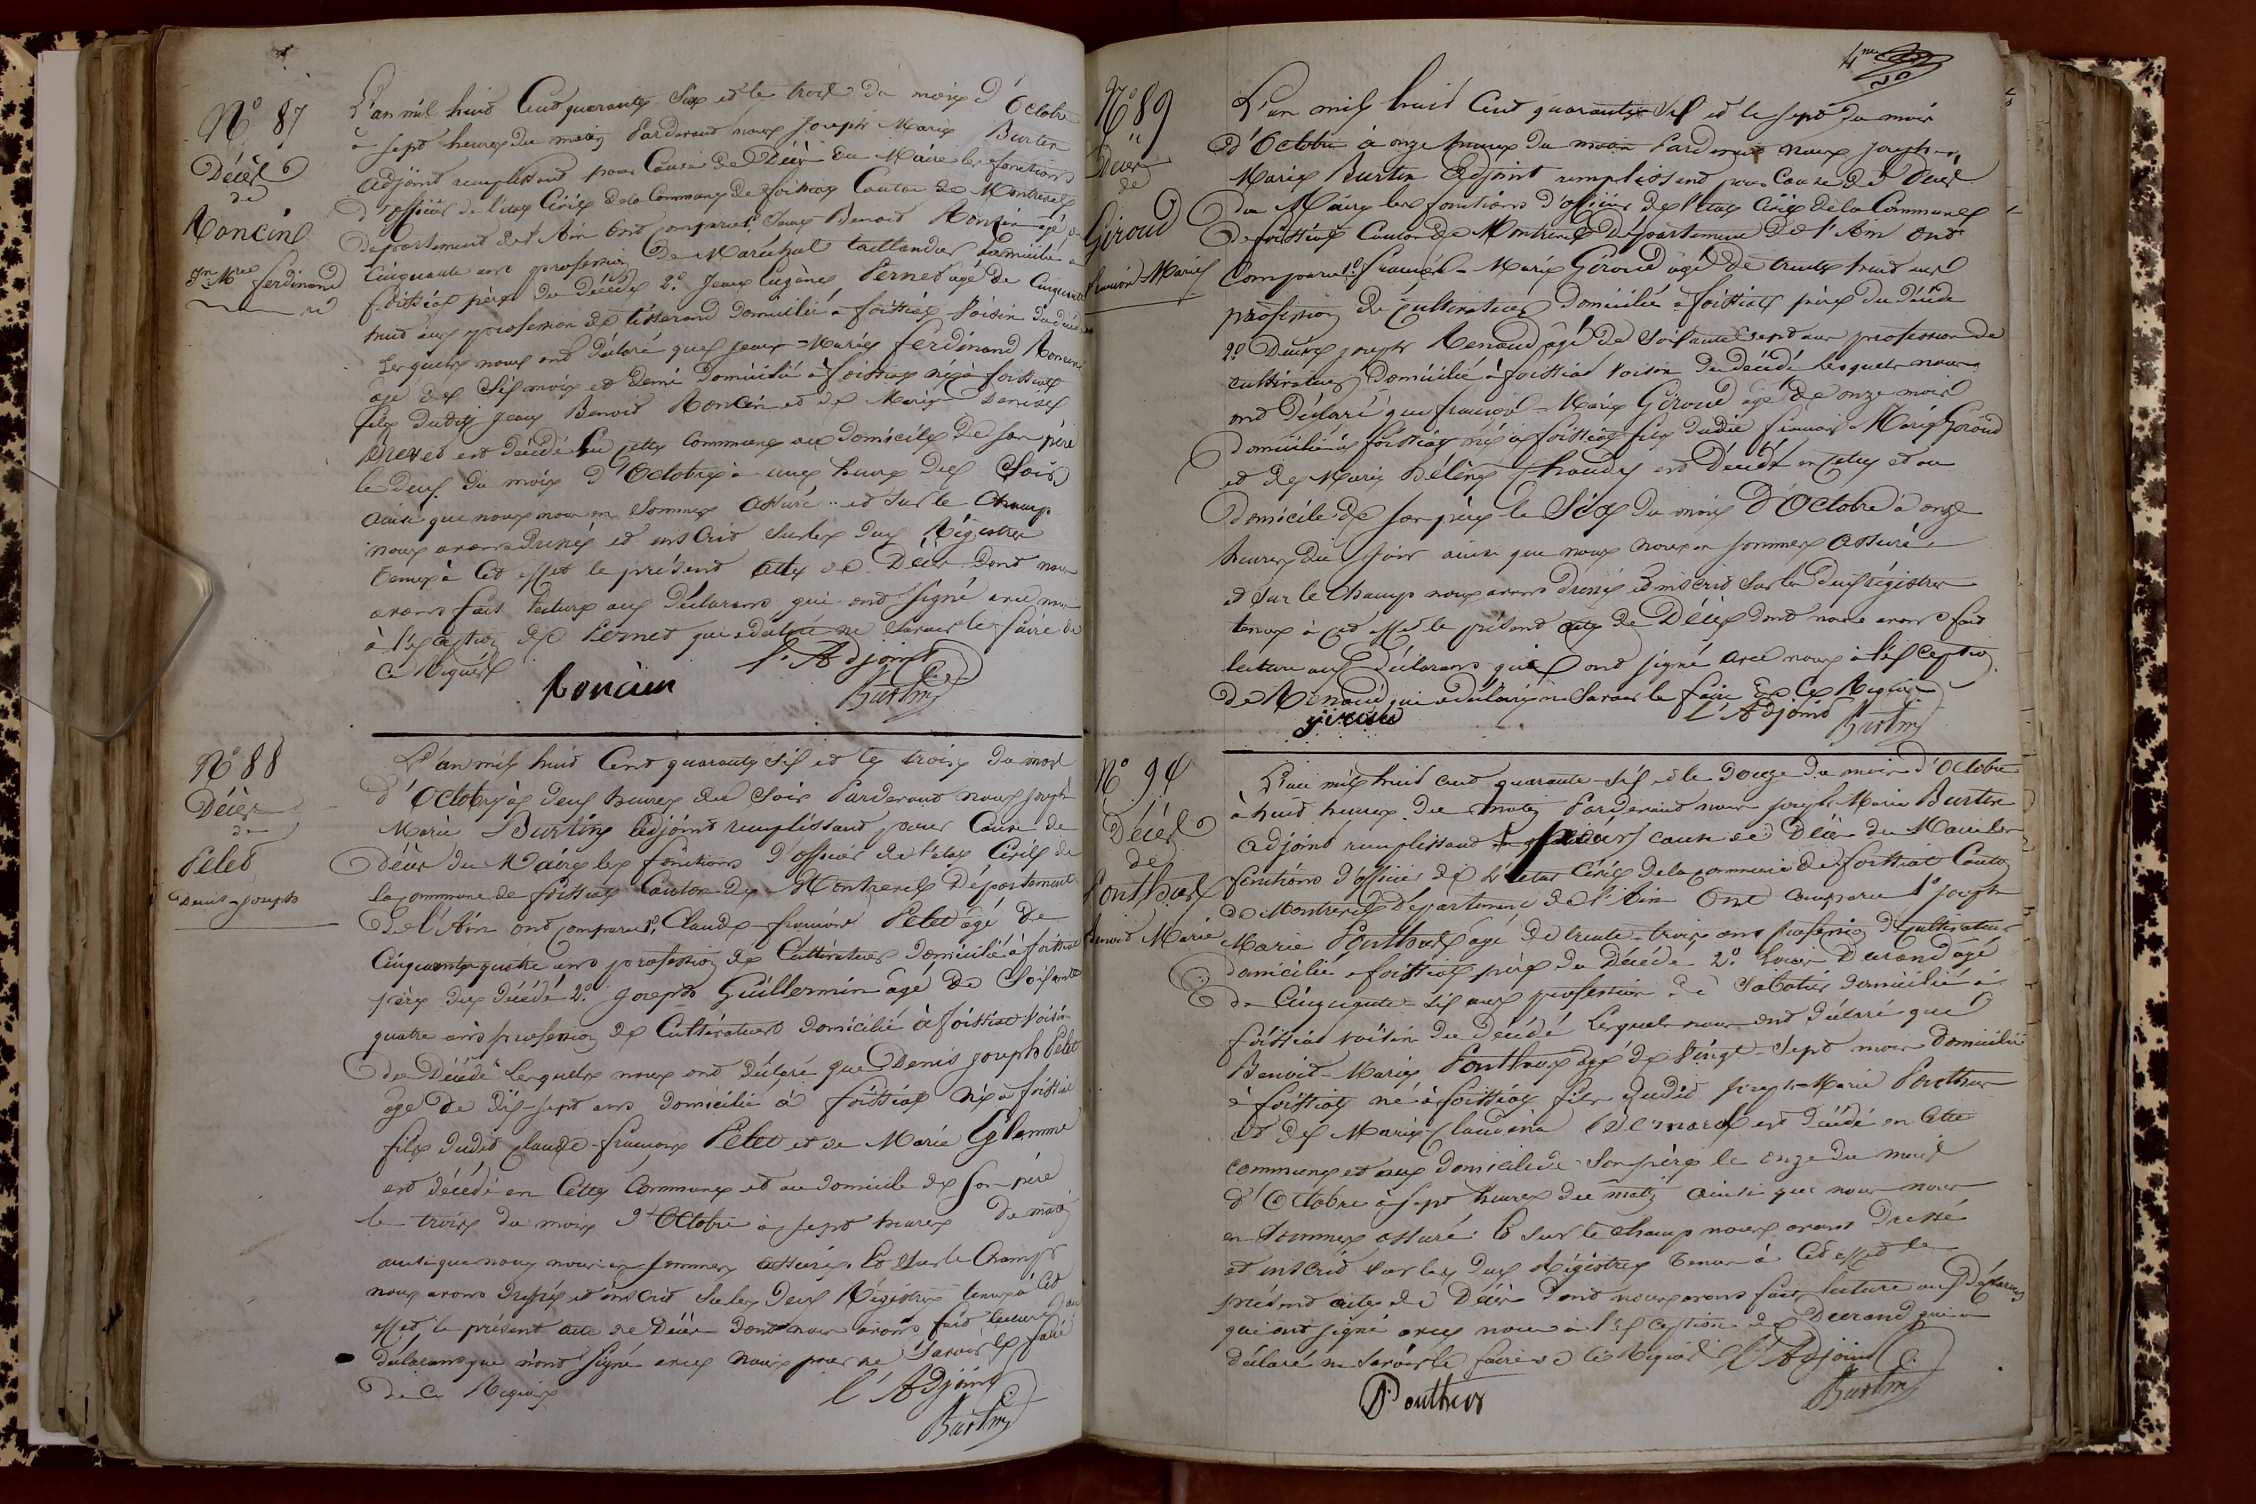 N° 87
Décès
de
Roncin
Jn Mie ferdinand
L'an mil huit Cent quarante Six et le trois du mois d'Octobre
à sept heures du matin Pardevant nous Joseph Marie Burtin
adjoint remplissant pour Cause de Décès du Maire les fonctions
d'officier de l'état Civil de la Commune de foissiat Canton de Montrevel
département de l'Ain ont comparu 1° Jean Benoit Roncin âgé de
Cinquante ans profession de Maréchal taillandier domicilié à
foissiat père du décédé 2° Jean Eugène Pernet âgé de Cinquante
huit ans profession de tisserand domicilié à foissiat Voisin du décédé
Lesquels nous ont déclaré que Jean-Marie ferdinand Roncin
âgé de Six mois et demi domicilié à foissiat né à foissiat
fils dudit Jean Benoit Roncin et de Marie Denise
est décédé en cette Commune au domicile de son père
le deux du mois d'Octobre à une heure du Soir
ainsi que nous nous en Sommes assuré et Sur le Champ
nous avons Dressé et inscrit Sur les deux Régistres
tenus à Cet effet le présent acte de Décès Dont nous
avons fait lecture aux déclarans qui ont Signé avec nous
à l'exception de Pernet qui a déclaré ne Savoir le faire de
Ce Requis
l'Adjoint
Roncin
Burtin
N° 88
Décès
de
Pelet
Denis-Joseph
L'an mil huit Cent quarante six et le trois du mois
d'Octobre à deux heures du Soir Pardevant nous Joseph
Marie Burtin adjoint remplissant pour Cause de
décès du Maire les fonctions d'officier de l'état Civil de
la commune de foissiat Canton de Montrevel Département
de l'Ain ont comparu 1° Claude-francois Pelet âgé de
Cinquante quatre ans profession de Cultivateur domicilié à foissiat
père du décédé 2° Joseph Guillermin âgé de Soixante
quatre ans profession de Cultivateur domicilié à foissiat Voisin
du Décédé Lesquels nous ont déclaré que Denis Joseph Pelet
âgé de dix-sept ans domicilié à foissiat Né à foissiat
fils dudit Claude-francois Pelet et de Marie
est décédé en Cette Commune et au domicile de son père
le trois du mois d'Octobre à sept heures du matin
ainsi que nous nous en sommes assuré. Et Sur le Champ
nous avons dressé et inscrit Sur les deux Régistres tenus à Cet
effet le présent acte de Décès Dont nous avons fait lecture aux
déclarans qui n'ont Signé avec Nous pour ne Savoir le faire
de Ce Requis
l'Adjoint
Burtin
4me
N° 89
Décès
de
Giroud
francois-Marie
L'an mil huit Cent quarante Six et le sept du mois
d'Octobre à onze heures du matin Pardevant nous Joseph
Marie Burtin Adjoint remplissant pour Cause de Décès
du Maire les fonctions d'officier de l'état Civil de la Commune
de foissiat Canton de Montrevel département de l'Ain ont
Comparu 1° francois-Marie Giroud âgé de trente huit ans
profession de cultivateur domicilié à foissiat père du décédé
2° Denis Joseph Renaud âgé de Soixante Sept ans profession de
cultivateur domicilié à foissiat voisin du décédé Lesquels nous
ont déclaré que francois-Marie Giroud âgé de onze mois
domicilié à foissiat né à foissiat fils dudit francois-Marie Giroud
et de Marie Hélène est décédé en Cette et au
domicile de son père le Six du mois d'Octobre à onze
heures du soir ainsi que nous nous en sommes Assuré
et Sur le Champ nous avons dressé et inscrit Sur les deux régistres
tenus à cet effet le présent acte de Décès dont nous avons fait
lecture aux déclarans qui ont signé avec nous à l'exception
de Renaud qui a déclaré ne Savoir le faire de Ce Requis
l'Adjoint
giroud
Burtin
N° 90
Décès
de
Ponthus
Benoit Marie
L'an mil huit cent quarante-six et le douze du mois d'Octobre
à huit heures du matin Pardevant nous Joseph Marie Burtin
adjoint remplissant pour cause de Décès du Maire les
fonctions d'officier de l'état Civil de la commune de foissiat Canton
de Montrevel département de l'Ain Ont comparu 1° Joseph
Marie Ponthus âgé de trente-trois ans profession de Cultivateur
domicilié à foissiat père du Décédé 2° Durand âgé
de Cinquante-six ans profession de Sabotier domicilié à
foissiat voisin du Décédé Lesquels nous ont déclaré que
Benoit-Marie Ponthus âgé de Vingt-Sept mois domicilié
à foissiat né à foissiat fils dudit Joseph-Marie Ponthus
et de Marie-Claudine est décédé en Cette
commune et au domicile de Son père le onze du mois
d'Octobre à sept heures du matin ainsi que nous nous
en Sommes assuré. Et Sur le Champ nous avons Dressé
et inscrit Sur les deux Régistres tenus à Cet effet le
présent acte de Décès Dont nous avons fait lecture aux Déclarans
qui ont signé avec nous à l'exception de Durand qui a
déclaré ne Savoir le faire de ce Requis l'Adjoint
Ponthus
Burtin